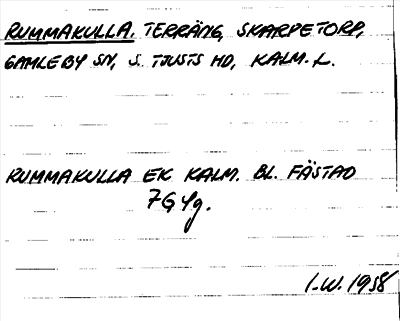 RUMMAKULLA, TERRÄNG, SKARPETORP,
GAMLEBY SN, S. TJUSTS HD, KALM. L.
RUMMAKULLA EK KALM. BL. FÄSTAD
7G 4g.
I.W. 1958